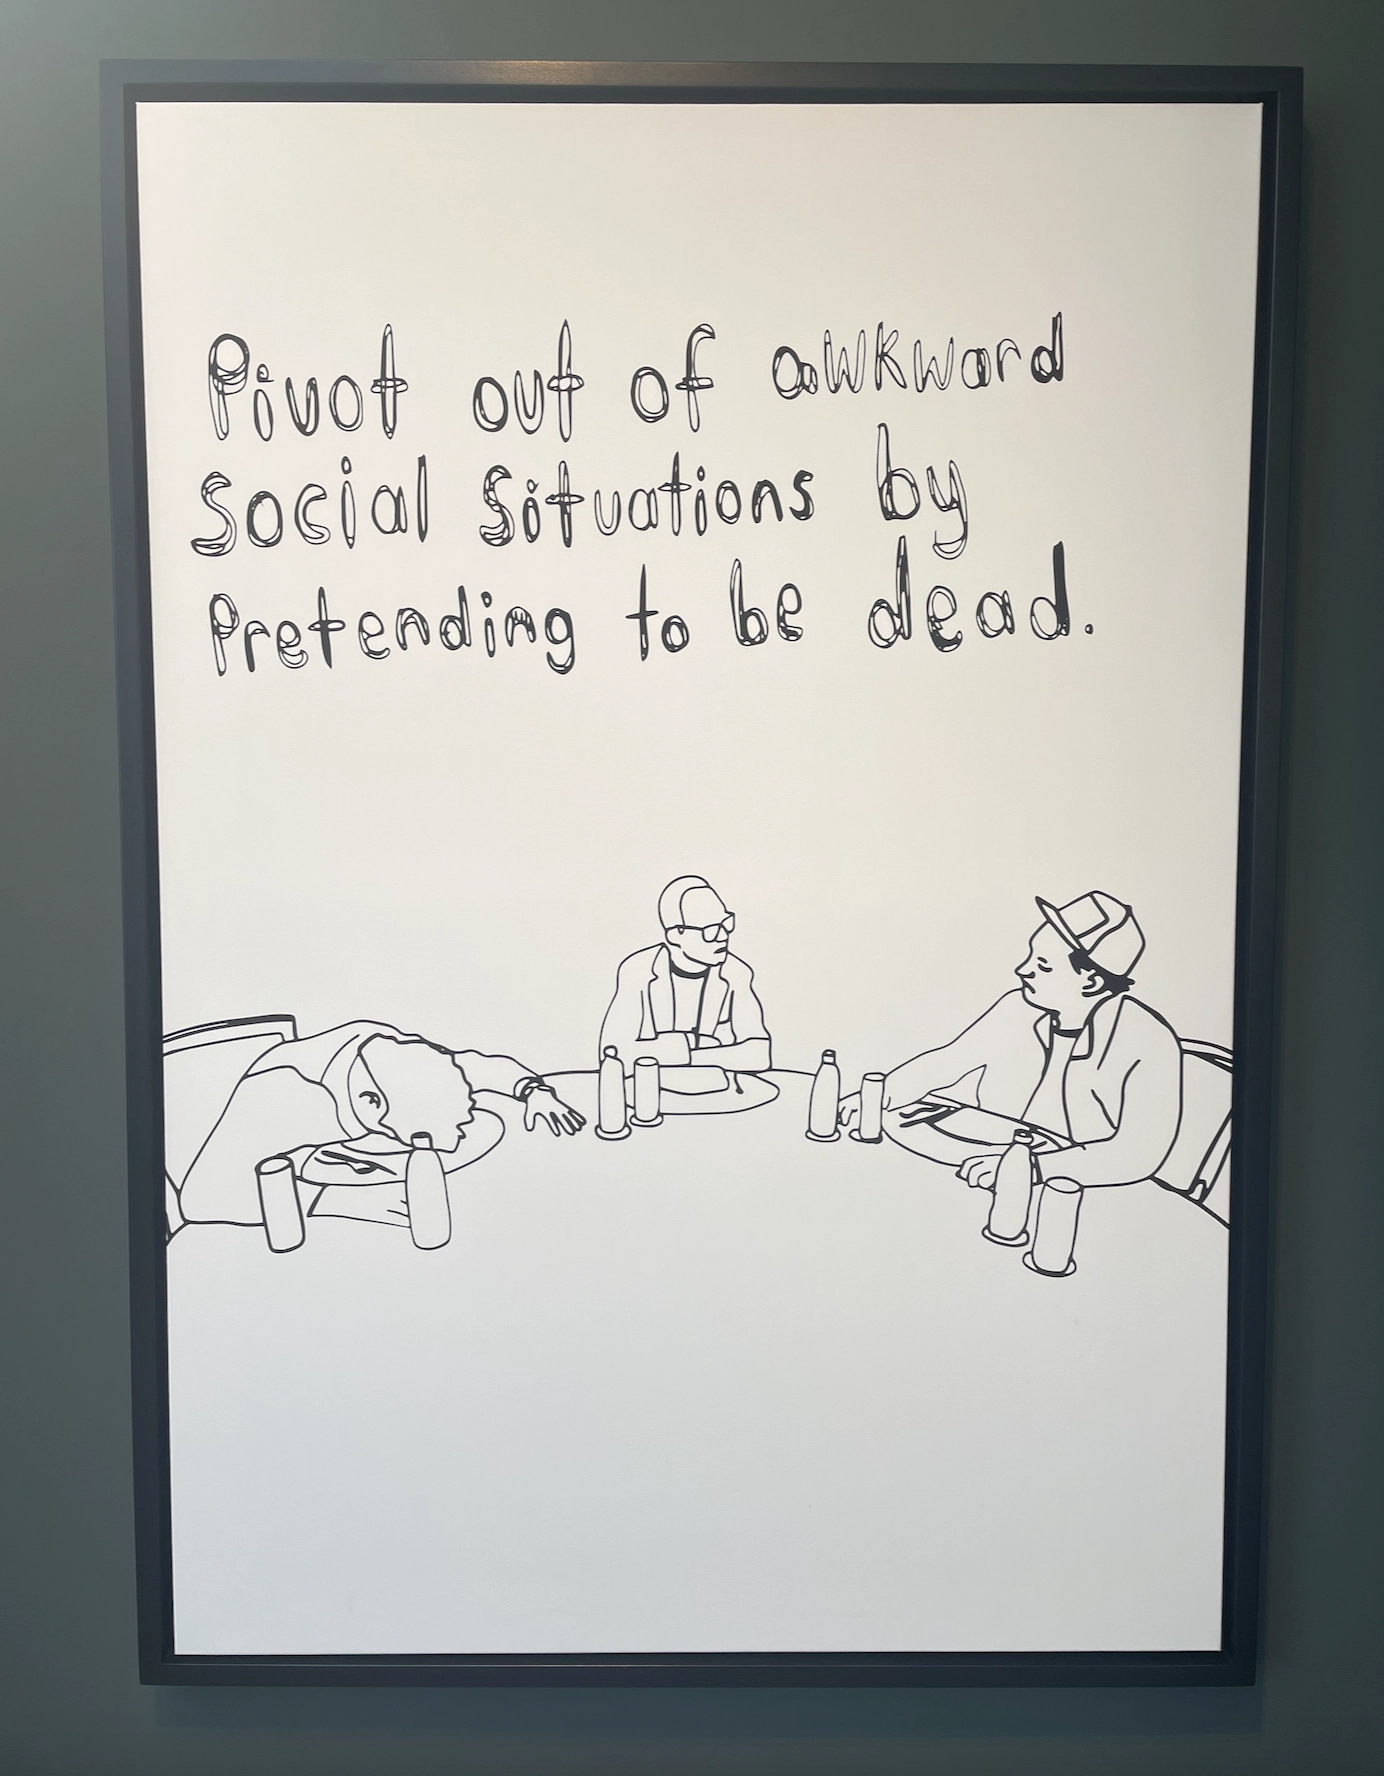 Pivot out of awkward
Social Situations by
Pretending to be dead.